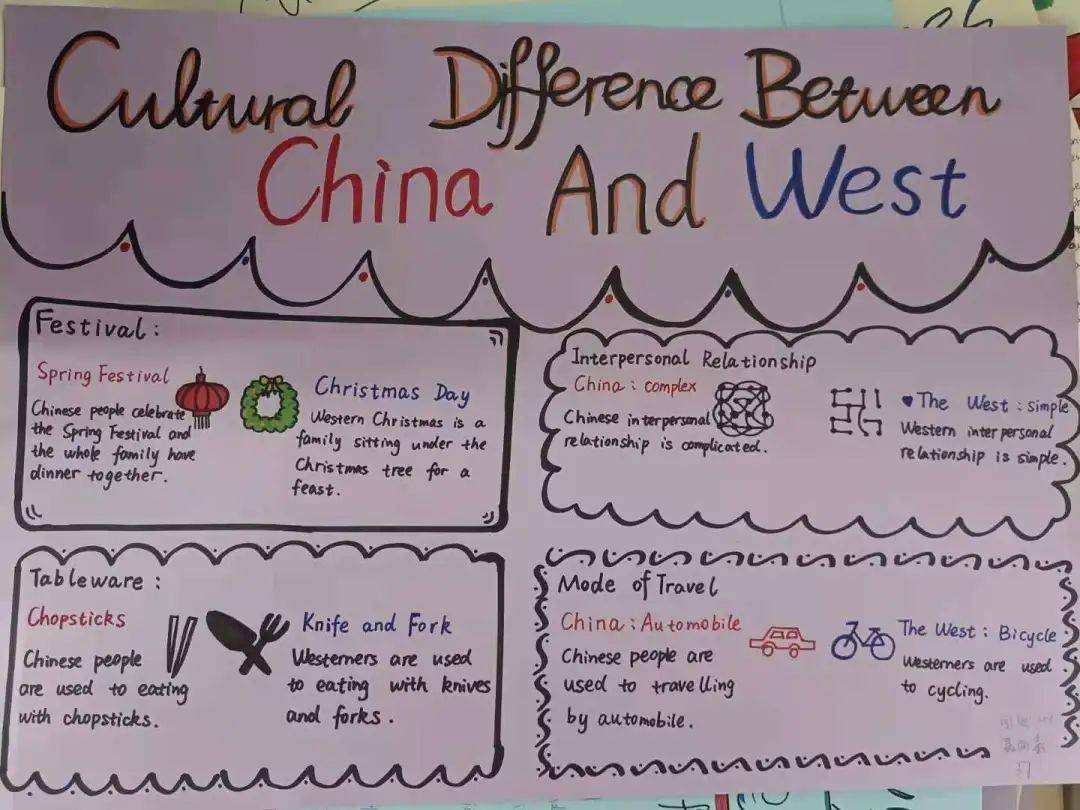 Cultural Difference Between
China And West
Festival:
Spring Festival
Chinese people celebrate
the Spring Festival and
the whole family have
dinner together.
Christmas Day
Western Christmas is a
family sitting under the
Christmas tree for a
feast.
Interpersonal Relationship
China: complex
Chinese interpersonal
relationship is complicated.
♥The West: simple
Western interpersonal
relationship is simple.
Tableware:
Chopsticks
Chinese people
are used to eating
with chopsticks.
Knife and Fork
Westerners are used
to eating with knives
and forks.
Mode of Travel
China: Automobile
Chinese people are
used to travelling
by automobile.
The West: Bicycle
Westerners are used
to cycling.